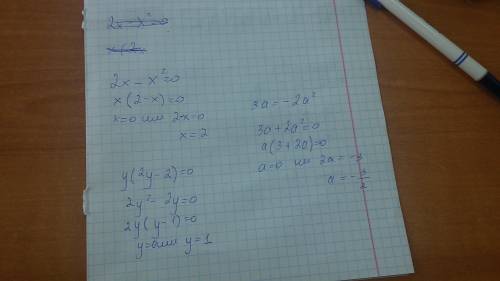 2x - x² = 0
x(2-x)=0
x=0 или 2-x=0
x=2
y(2y-2)=0
2y²-2y=0
2y(y-1)=0
y=0 или y=1
3a=-2a²
3a+2a²=0
a(3+2a)=0
a=0 или 2a=-3
a=-3/2